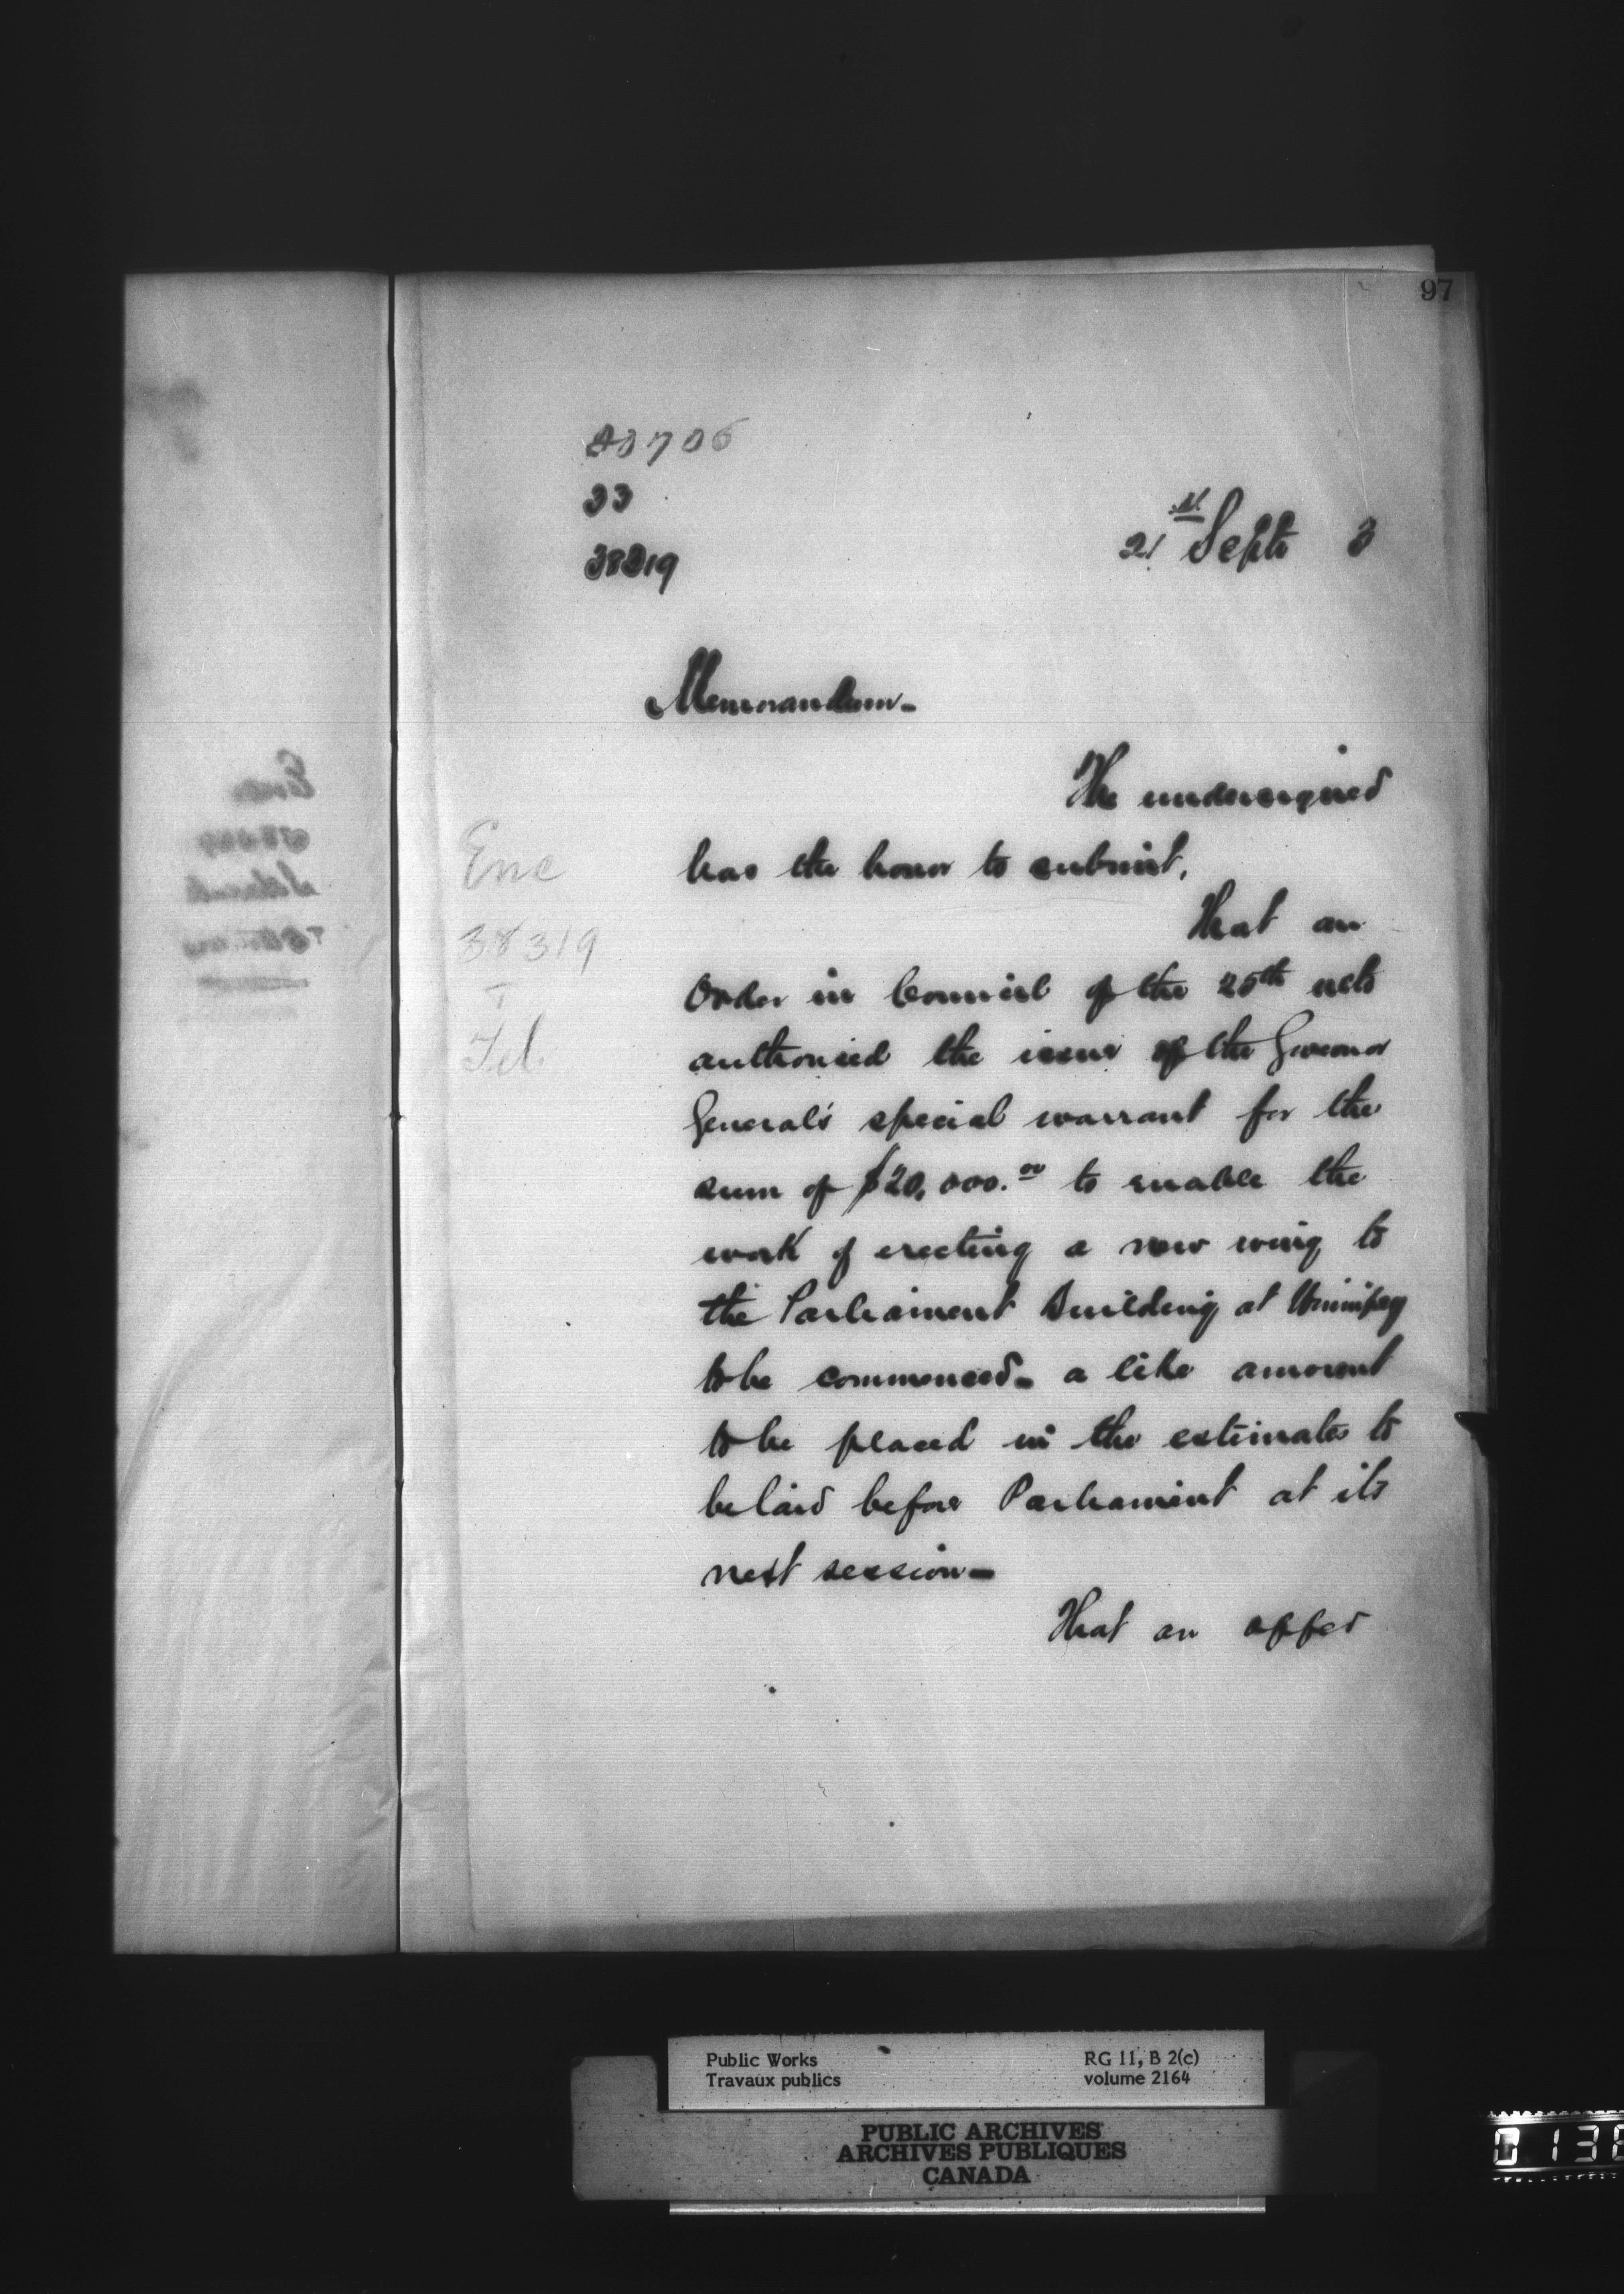 97
33
38319
21st Septr 3
Memorandum-
The undersigned
has the honor to submit,
That an
Enc
38319
T
Order in Council of the 25th ulto
authorised the issue of the Governor
General's special warrant for the
sum of $20,000.00 to enable the
work of erecting a new wing to
the Parliament Building at Winnipeg
to be commenced- a like amount
to be placed in the estimates to
be laid before Parliament at its
next session-
That an offer
Public Works
Travaux publics
RG 11, B 2(c)
volume 2164
PUBLIC ARCHIVES
ARCHIVES PUBLIQUES
CANADA